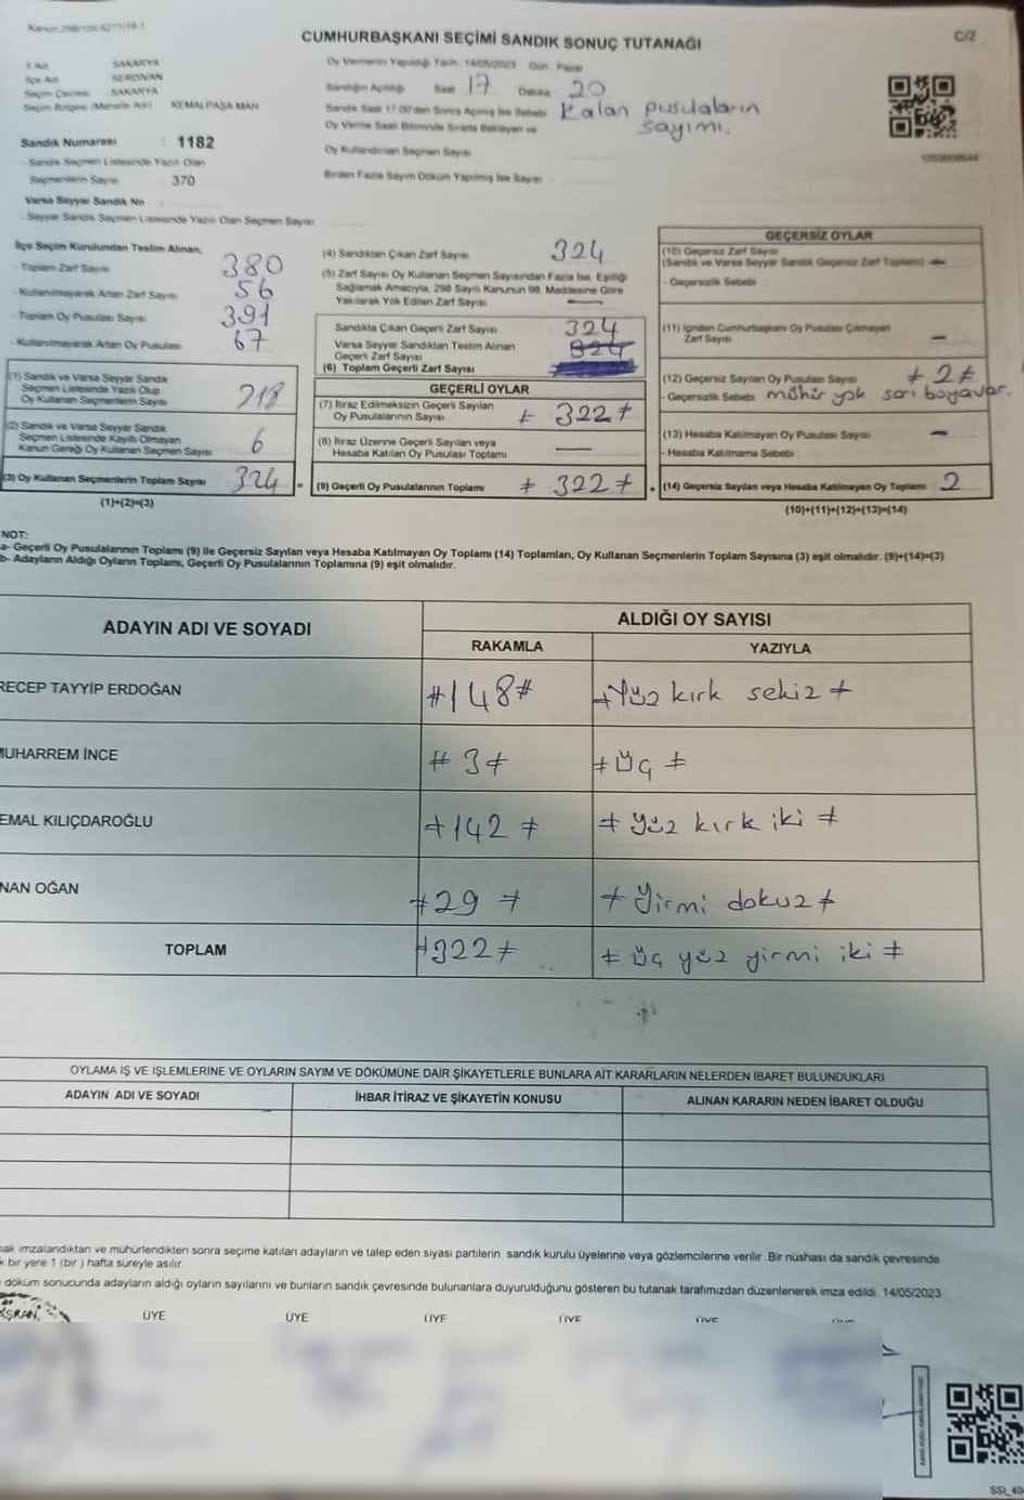 CUMHURBAŞKANI SEÇİMİ SANDIK SONUÇ TUTANAĞI
C/2
İl Adı SAKARYA
İlçe Adı SERDİVAN
Seçim Çevresi SAKARYA
Seçim Bölgesi (Mahalle Adı) KEMALPAŞA MAH.
Sandık Numarası : 1182
Sandık Seçmen Listesinde Yazılı Olan
Seçmenlerin Sayısı 370
Varsa Seyyar Sandık No
Seyyar Sandık Seçmen Listesinde Yazılı Olan Seçmen Sayısı
Oy Vermenin Yapıldığı Tarih :14/05/2023 Gün: Pazar
Sandığın Açıldığı Saat 17 Dakika 20
Sandık Saat 17.00'den Sonra Açılmış İse Sebebi Kalan pusulaların
sayımı.
Oy Verme Saati Bitiminde Sırada Bekleyen ve
Oy Kullandırılan Seçmen Sayısı
Birden Fazla Sayım Döküm Yapılmış İse Sayısı
İlçe Seçim Kurulundan Teslim Alınan,
- Toplam Zarf Sayısı 380
- Kullanılmayarak Artan Zarf Sayısı 56
- Toplam Oy Pusulası Sayısı 391
- Kullanılmayarak Artan Oy Pusulası 67
(1) Sandık ve Varsa Seyyar Sandık
Seçmen Listesinde Yazılı Olup
Oy Kullanan Seçmenlerin Sayısı 318
(2) Sandık ve Varsa Seyyar Sandık
Seçmen Listesinde Kayıtlı Olmayan
Kanun Gereği Oy Kullanan Seçmen Sayısı 6
(3) Oy Kullanan Seçmenlerin Toplam Sayısı 324 =
(1)+(2)=(3)
(4) Sandıktan Çıkan Zarf Sayısı 324
(5) Zarf Sayısı Oy Kullanan Seçmen Sayısından Fazla İse, Eşitliği
Sağlamak Amacıyla, 298 Sayılı Kanunun 98. Maddesine Göre
Yakılarak Yok Edilen Zarf Sayısı —
Sandıkta Çıkan Geçerli Zarf Sayısı 324
Varsa Seyyar Sandıktan Teslim Alınan
Geçerli Zarf Sayısı
(6) Toplam Geçerli Zarf Sayısı
GEÇERLİ OYLAR
(7) İtiraz Edilmeksizin Geçerli Sayılan
Oy Pusulalarının Sayısı ≠ 322 ≠
(8) İtiraz Üzerine Geçerli Sayılan veya
Hesaba Katılan Oy Pusulası Toplamı —
(9) Geçerli Oy Pusulalarının Toplamı ≠ 322 ≠ +
GEÇERSİZ OYLAR
(10) Geçersiz Zarf Sayısı
(Sandık ve Varsa Seyyar Sandık Geçersiz Zarf Toplamı) —
- Geçersizlik Sebebi
(11) İçinden Cumhurbaşkanı Oy Pusulası Çıkmayan
Zarf Sayısı —
(12) Geçersiz Sayılan Oy Pusulası Sayısı ≠ 2 ≠
- Geçersizlik Sebebi mühür yok sarı boya var.
(13) Hesaba Katılmayan Oy Pusulası Sayısı —
- Hesaba Katılmama Sebebi
(14) Geçersiz Sayılan veya Hesaba Katılmayan Oy Toplamı 2
(10)+(11)+(12)+(13)=(14)
NOT:
a- Geçerli Oy Pusulalarının Toplamı (9) ile Geçersiz Sayılan veya Hesaba Katılmayan Oy Toplamı (14) Toplamları, Oy Kullanan Seçmenlerin Toplam Sayısına (3) eşit olmalıdır. (9)+(14)=(3)
b- Adayların Aldığı Oyların Toplamı, Geçerli Oy Pusulalarının Toplamına (9) eşit olmalıdır.
ADAYIN ADI VE SOYADI
ALDIĞI OY SAYISI
RAKAMLA YAZIYLA
RECEP TAYYİP ERDOĞAN #148# ≠ Yüz kırk sekiz ≠
MUHARREM İNCE # 3 ≠ ≠ Üç ≠
EMAL KILIÇDAROĞLU ≠ 142 ≠ ≠ yüz kırk iki ≠
NAN OĞAN ≠ 29 ≠ ≠ Yirmi dokuz ≠
TOPLAM ≠ 322 ≠ ≠ Üç yüz yirmi iki ≠
OYLAMA İŞ VE İŞLEMLERİNE VE OYLARIN SAYIM VE DÖKÜMÜNE DAİR ŞİKAYETLERLE BUNLARA AİT KARARLARIN NELERDEN İBARET BULUNDUKLARI
ADAYIN ADI VE SOYADI İHBAR İTİRAZ VE ŞİKAYETİN KONUSU ALINAN KARARIN NEDEN İBARET OLDUĞU
imzalandıktan ve mühürlendikten sonra seçime katılan adayların ve talep eden siyasi partilerin sandık kurulu üyelerine veya gözlemcilerine verilir. Bir nüshası da sandık çevresinde
bir yere 1 (bir) hafta süreyle asılır.
döküm sonucunda adayların aldığı oyların sayılarını ve bunların sandık çevresinde bulunanlara duyurulduğunu gösteren bu tutanak tarafımızdan düzenlenerek imza edildi. 14/05/2023
ÜYE ÜYE ÜYE ÜYE ÜYE